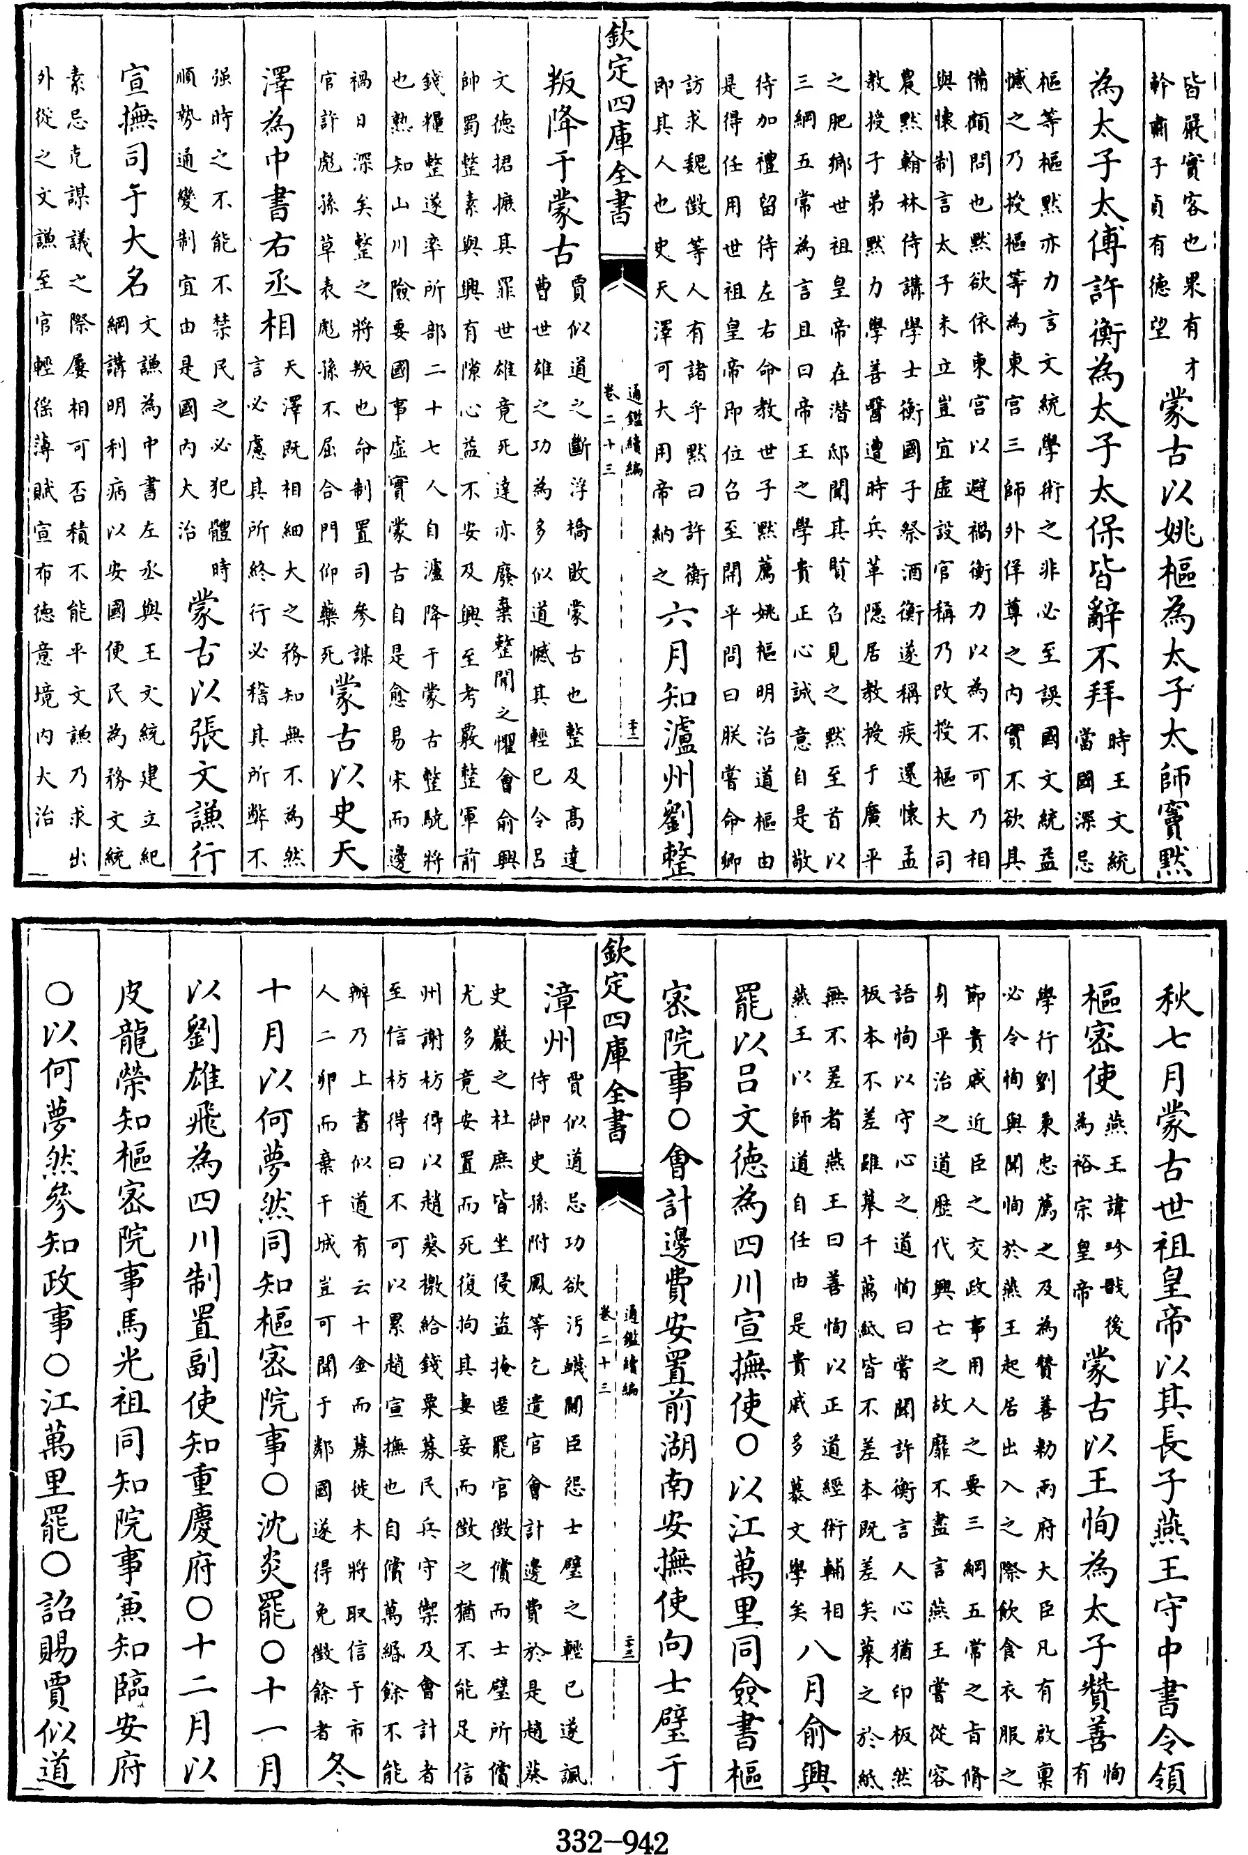 皆嚴實客也果有才
幹肅子貞有德望
蒙古以姚樞為太子太師竇默
為太子太傅許衡為太子太保皆辭不拜
時王文統
當國深忌
樞等樞默亦力言文統學術之非必至誤國文統益
憾之乃授樞等為東宮三師外佯尊之內實不欲其
備顧問也默欲依東宮以避禍衡力以為不可乃相
與懷制言太子未立豈宜虛設官稱乃改授樞大司
農默翰林侍講學士衡國子祭酒衡遂稱疾還懷孟
教授子弟默力學善醫遭時兵革隱居教授于廣平
之肥鄉世祖皇帝在潛邸聞其賢召見之默至首以
三綱五常為言且曰帝王之學貴正心誠意自是敬
待加禮留侍左右命教世子默薦姚樞明治道樞由
是得任用世祖皇帝即位召至開平問曰朕嘗命卿
訪求魏徵等人有諸乎默曰許衡
即其人也史天澤可大用帝納之
六月知瀘州劉整
欽定四庫全書
通鑑續編
卷二十三
叛降于蒙古
賈似道之斷浮橋敗蒙古也整及高達
曹世雄之功為多似道憾其輕已令呂
文德捃摭其罪世雄竟死達亦廢棄整聞之懼會俞興
帥蜀整素與興有隙心益不安及興至考覈整軍前
錢糧整遂率所部二十七人自瀘降于蒙古整驍將
也熟知山川險要國事虛實蒙古自是愈易宋而邊
禍日深矣整之將叛也命制置司參謀
官許彪孫草表彪孫不屈合門仰藥死
蒙古以史天
澤為中書右丞相
天澤既相細大之務知無不為然
言必慮其所終行必稽其所弊不
强時之不能不禁民之必犯體時
順勢通變制宜由是國內大治
蒙古以張文謙行
宣撫司于大名
文謙為中書左丞與王文統建立紀
綱講明利病以安國便民為務文統
素忌克謀議之際屢相可否積不能平文謙乃求出
外從之文謙至官輕徭薄賦宣布德意境內大治
秋七月蒙古世祖皇帝以其長子燕王守中書令領
樞密使
燕王諱珍戩後
為裕宗皇帝
蒙古以王恂為太子贊善
恂
有
學行劉秉忠薦之及為贊善勅兩府大臣凡有啟稟
必令恂與聞恂於燕王起居出入之際飲食衣服之
節貴戚近臣之交政事用人之要三綱五常之旨脩
身平治之道歷代興亡之故靡不盡言燕王嘗從容
語恂以守心之道恂曰嘗聞許衡言人心猶印板然
板本不差雖摹千萬紙皆不差本既差矣摹之於紙
無不差者燕王曰善恂以正道經術輔相
燕王以師道自任由是貴戚多慕文學矣
八月俞興
罷以呂文德為四川宣撫使○以江萬里同僉書樞
密院事○會計邊費安置前湖南安撫使向士璧于
欽定四庫全書
通鑑續編
卷二十三
漳州
賈似道忌功欲汚衊閫臣怨士璧之輕已遂諷
侍御史孫附鳳等乞遣官會計邊費於是趙葵
史巖之杜庶皆坐侵盜掩匿罷官徵償而士璧所償
尤多竟安置而死復拘其妻妾而徵之猶不能足信
州謝枋得以趙葵檄給錢粟募民兵守禦及會計者
至信枋得曰不可以累趙宣撫也自償萬緡餘不能
辦乃上書似道有云千金而募徙木將取信于市
人二卵而棄干城豈可聞于鄰國遂得免徵餘者
冬
十月以何夢然同知樞密院事○沈炎罷○十一月
以劉雄飛為四川制置副使知重慶府○十二月以
皮龍榮知樞密院事馬光祖同知院事兼知臨安府
○以何夢然參知政事○江萬里罷○詔賜賈似道
332-942